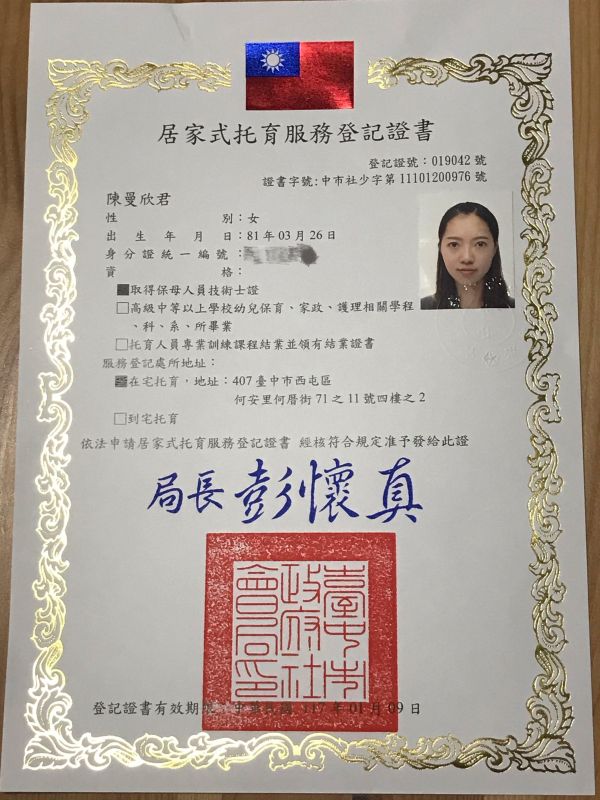 居家式托育服務登記證書
登記證號：019042 號
證書字號：中市社少字第 11101200976 號
陳曼欣君
性別：女
出生年月日：81 年 03 月 26 日
身分證統一編號：
資格：
■取得保母人員技術士證
□高級中等以上學校幼兒保育、家政、護理相關學程
、科、系、所畢業
□托育人員專業訓練課程結業並領有結業證書
服務登記處所地址：
■在宅托育，地址：407 臺中市西屯區
何安里何厝街 71 之 11 號四樓之 2
□到宅托育
依法申請居家式托育服務登記證書 經核符合規定准予發給此證
局長 彭懷真
臺中市
政府社
會局印
登記證書有效期限：中華民國 117 年 01 月 09 日